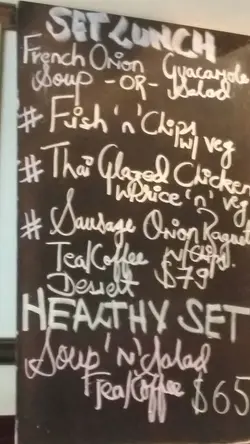 SET LUNCH
French Onion Guacamole
Soup -OR- Salad
# Fish 'n' Chips
w/ veg
# Thai Glazed Chicken
w Rice 'n' veg
# Sausage Onion Ragout
w/ chips.
Tea/Coffee
Dessert $79
HEALTHY SET
Soup 'N' Salad
Tea/Coffee $65